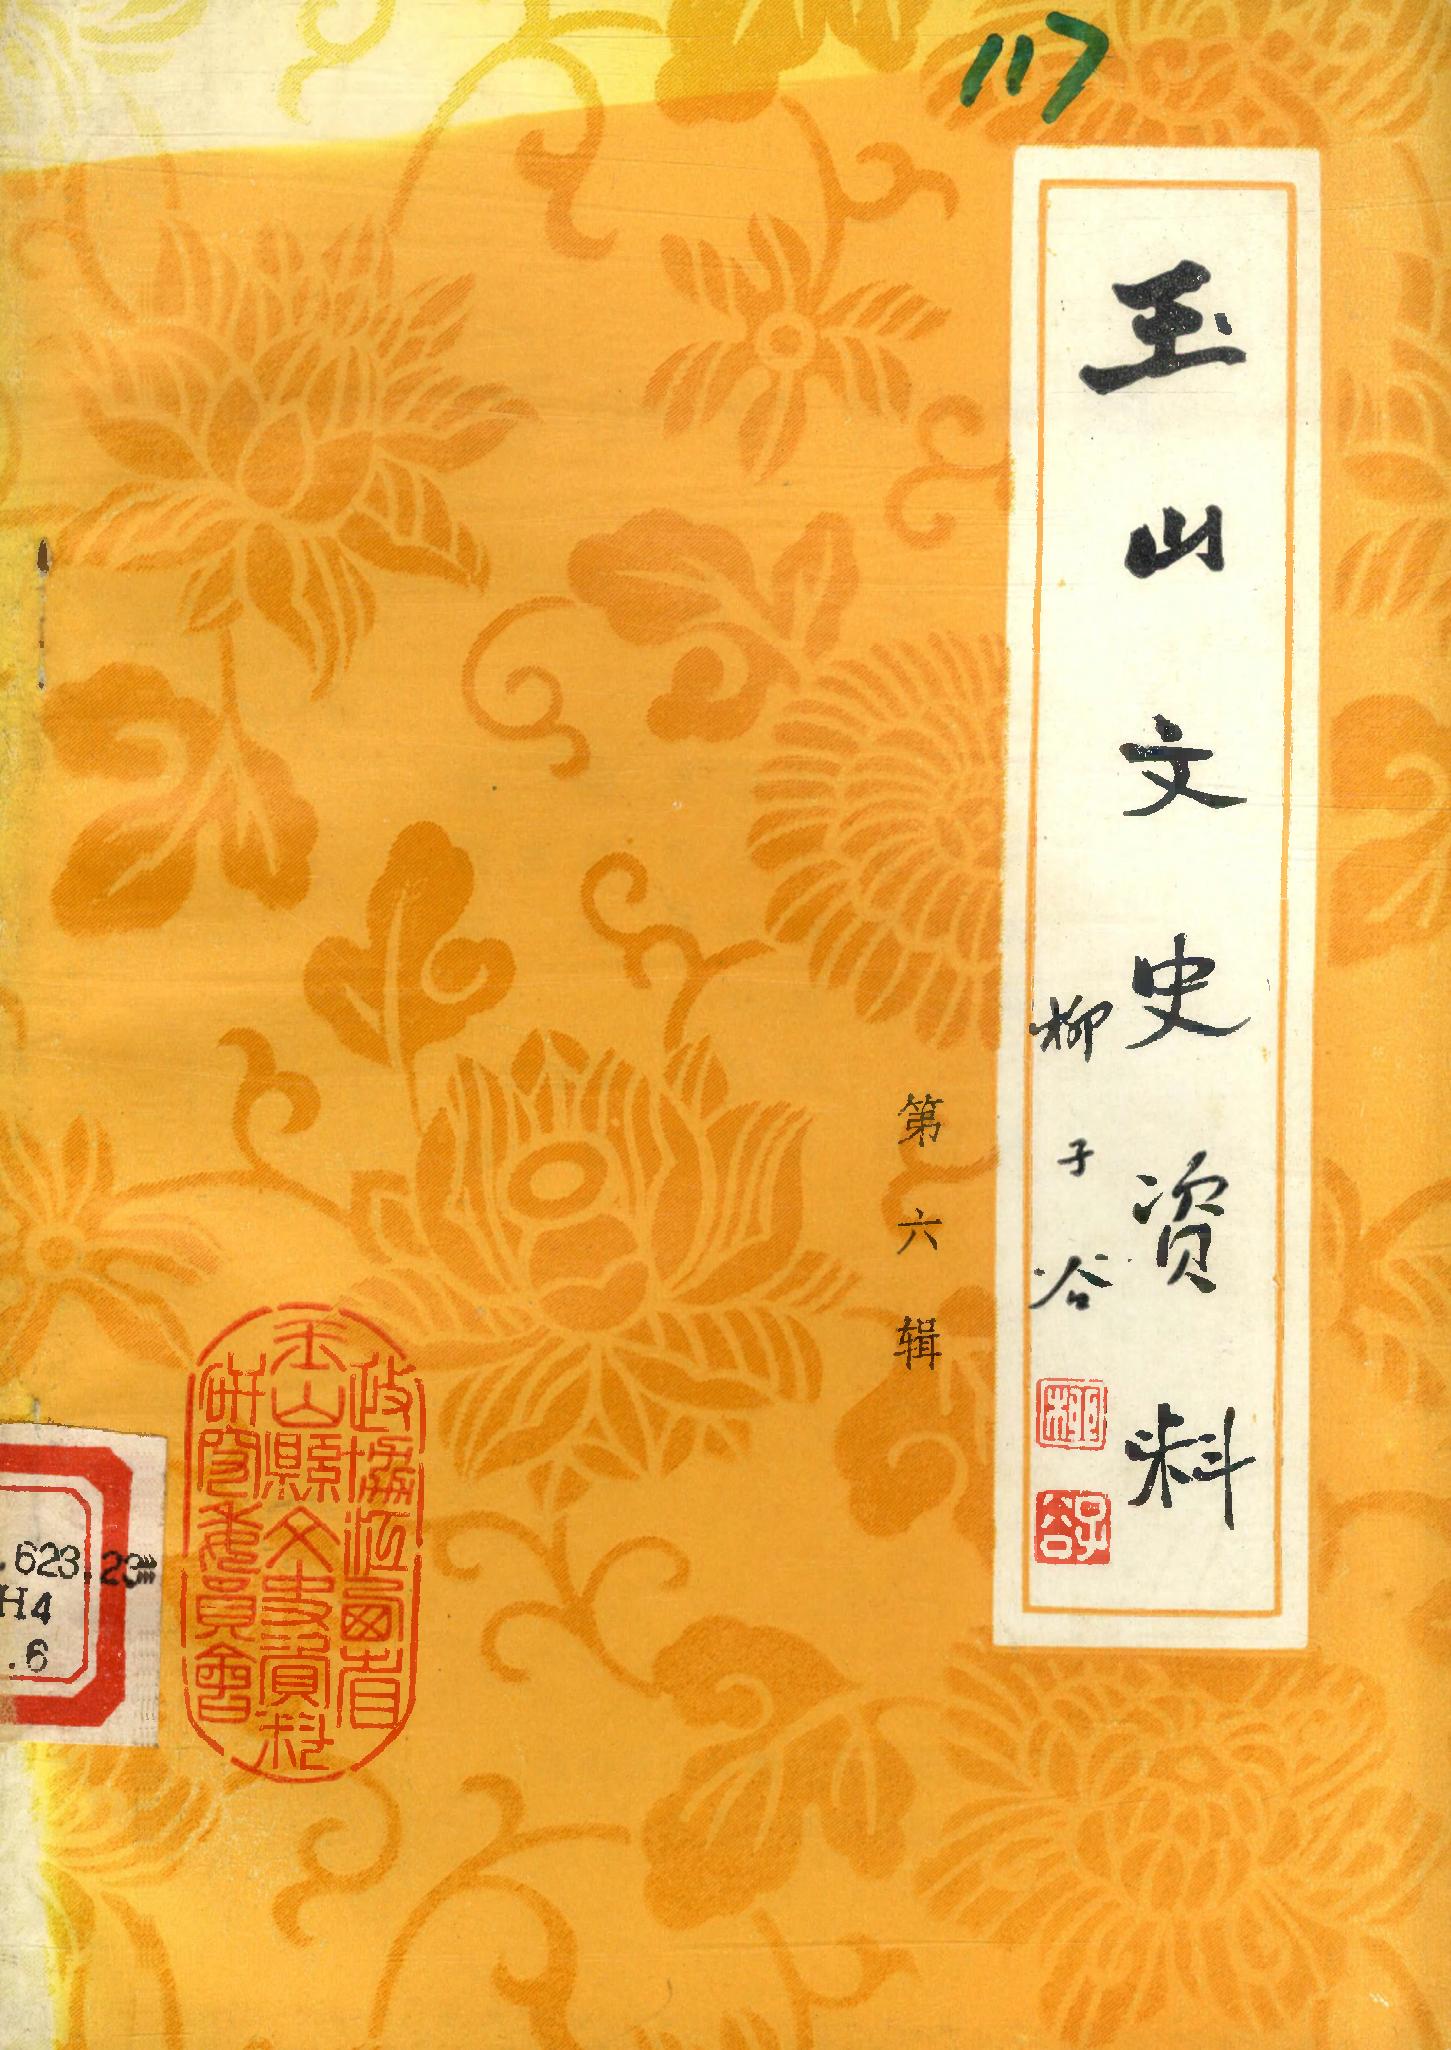 117
玉山文史资料
柳子谷
柳
子谷
第六辑
政協江西省
玉山縣文史資料
研究委員會
.623.23
H4
.6